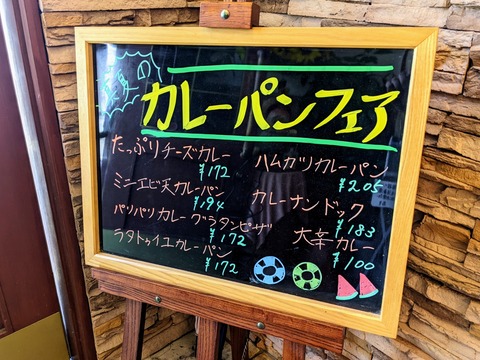 夏の
カレーパンフェア
たっぷりチーズカレー
¥172
ミニエビ天カレーパン
¥194
パリパリカレーグラタンピザ
¥172
ラタトゥイユカレーパン
¥172
ハムカツカレーパン
¥205
カレーナンドック
¥183
大辛カレー
¥100